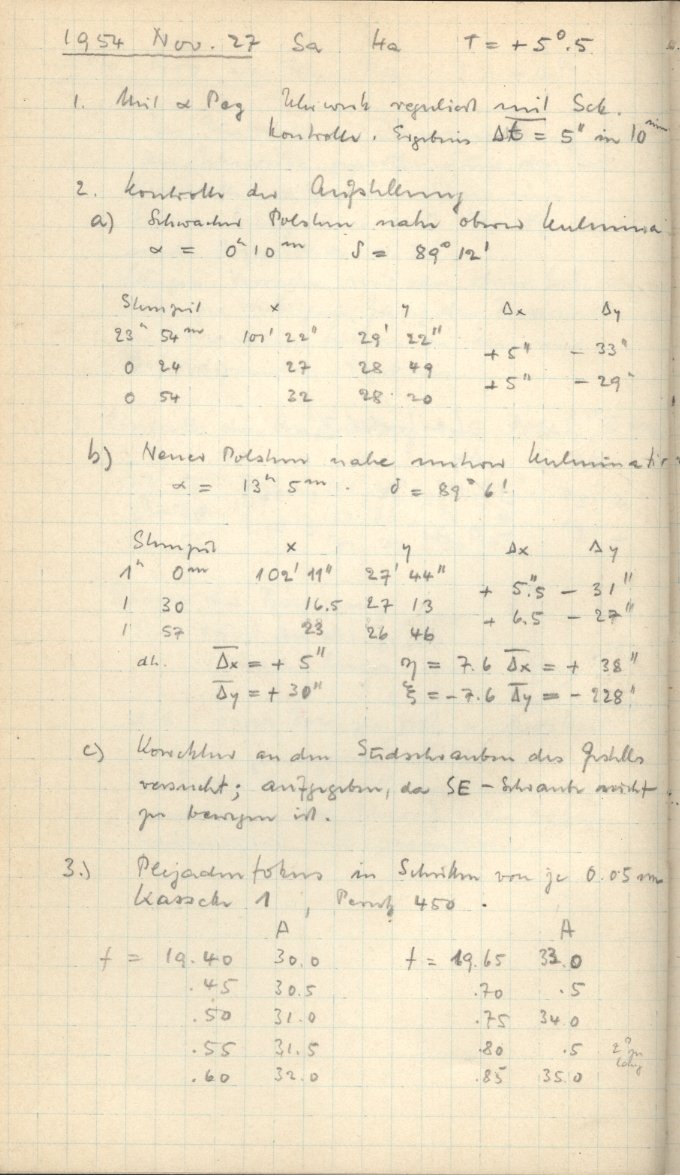 1954 Nov. 27 Sa Ha T = + 5°.5
1. Mit α Peg Uhrwerk reguliert mit Sek.
kontrolle. Ergebnis Δt = 5" in 10 min
2. Kontrolle der Aufstellung
a) Schwacher Polstern nahe oberer Kulmina
α = 0h 10m δ = 89° 12'
Sternzeit x y Δx Δy
23h 54m 101' 22" 29' 22"
+ 5" - 33"
0 24 27 28 49
+ 5" - 29"
0 54 32 28 20
b) Neuer Polstern nahe unterer Kulmination
α = 13h 5m. δ = 89° 6'
Sternzeit x y Δx Δy
1h 0m 102' 11" 27' 44"
+ 5".5 - 31"
1 30 16.5 27 13
+ 6.5 - 27"
1 57 23 26 46
dh. Δx = + 5" η = 7.6 Δx = + 38"
Δy = + 30" ξ = - 7.6 Δy = - 228"
c) Korrektur an den Südschrauben des Gestells
versucht; aufgegeben, da SE - Schraube nicht
zu bewegen ist.
3.) Plejadenfokus in Schritten von je 0.05 mm
Kassette 1, Perutz 450.
A A
f = 19.40 30.0 f = 19.65 33.0
.45 30.5 .70 .5
.50 31.0 .75 34.0
.55 31.5 .80 .5
.60 32.0 .85 35.0